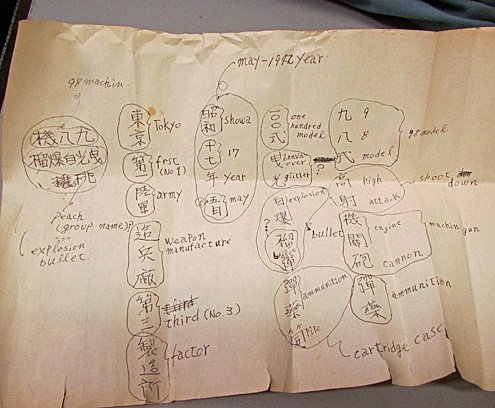 98 machin
機八九
榴爆自光曳
種桃
Peach
(group name)
explosion
bullet
東京 Tokyo
第一 first (No1)
陸軍 army
造兵廠 weapon manufacture
第三 third (No.3)
製造所 factor
may-1942 year
昭和 showa
十七 17
年 year
五月 may
一〇〇式 one hundred model
曳光 over glitter
自爆 explosion
榴彈 bullet
彈藥 ammunition
筒 pipe
cartridge case
九 9
八 8
式 model
98 model
高 high
射 attack
shoot down
機關 engine
砲 cannon
machin gun
彈藥 ammunition